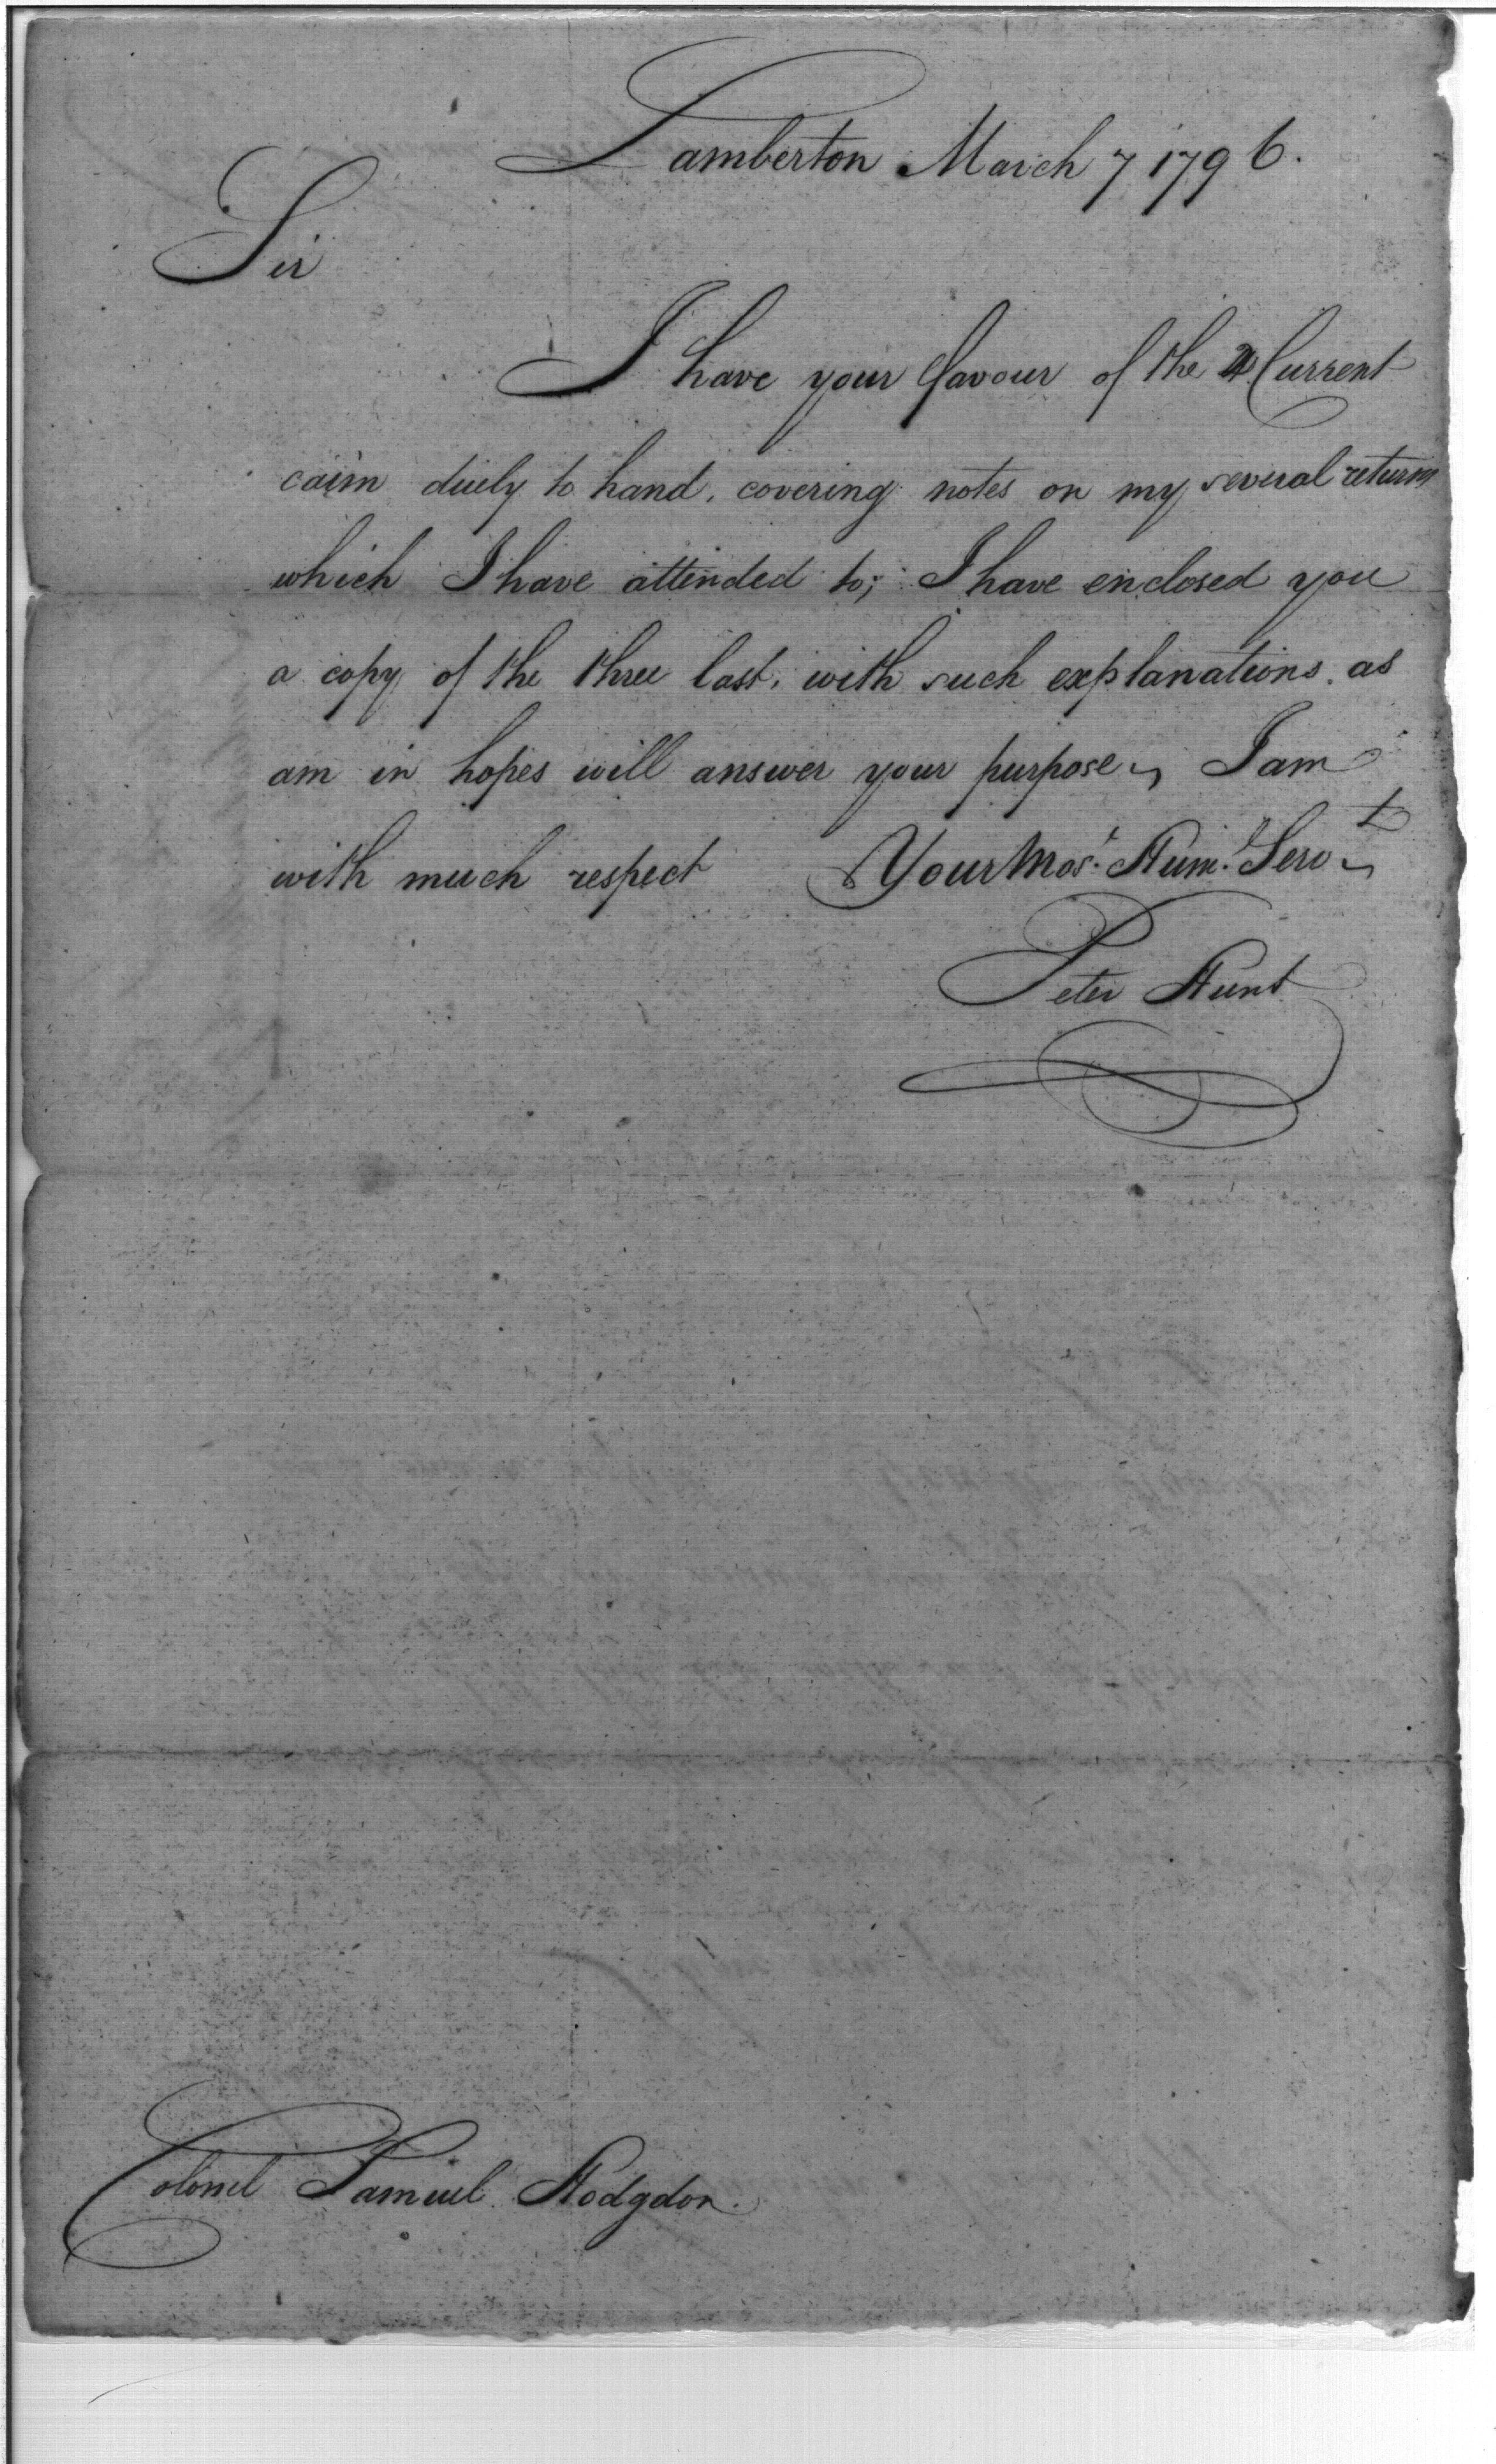 Lamberton March 7 1796.
Sir
I have your favour of the Current
caim duely to hand, covering notes on my several returns
which I have attended to; I have enclosed you
a copy of the three last, with such explanations as
am in hopes will answer your purpose, I am
with much respect Your Most. Hum.l Servt
Peter Hunt
Colonel Samuel Hodgdon.